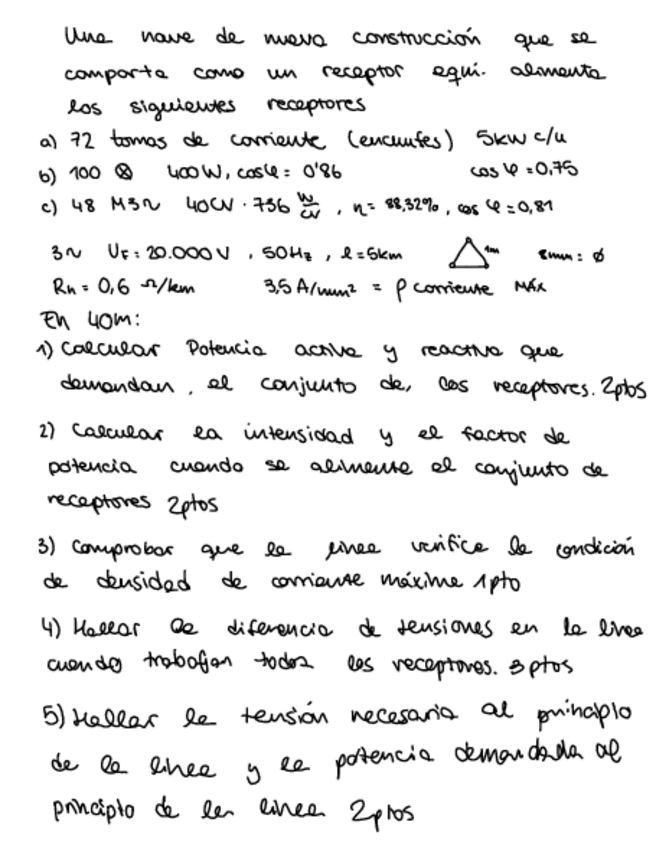 Una nave de nueva construcción que se
comporta como un receptor equi. alimenta
los siguientes receptores
a) 72 tomas de corriente (enchufes) 5kW c/u
b) 100 ⊗ 400W, cosφ = 0'86 cos φ = 0,75
c) 48 M3~ 40CV · 736 W/CV , η = 88,32%, cos φ = 0,81
3~ UF = 20.000 V , 50Hz , l = 5km 1m 8mm = ϕ
Rn = 0,6 Ω/km 3,5 A/mm² = ρ corriente MÁX
En 40m:
1) Calcular Potencia activa y reactiva que
demandan, el conjunto de, los receptores. 2ptos
2) Calcular la intensidad y el factor de
potencia cuando se alimente el conjunto de
receptores 2ptos
3) Comprobar que la linea verifica la condición
de densidad de corriente máxima 1pto
4) Hallar la diferencia de tensiones en la linea
cuando trabajan todos los receptores. 3ptos
5) Hallar la tensión necesaria al principio
de la linea y la potencia demandada al
principio de la linea 2ptos